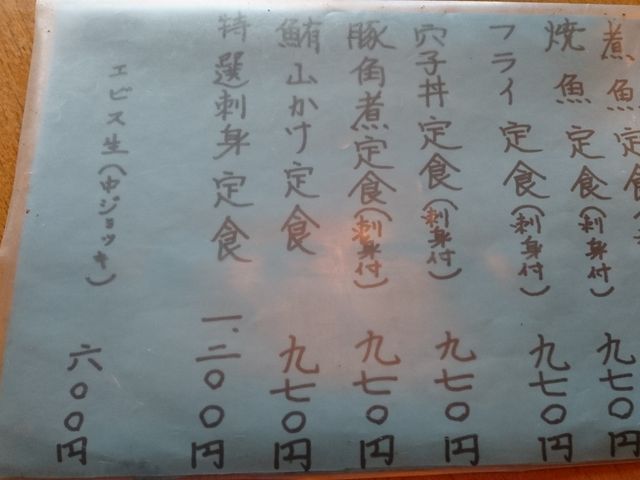 煮魚定食
九七〇円
焼魚定食(刺身付)
九七〇円
フライ定食(刺身付)
九七〇円
穴子丼定食(刺身付)
九七〇円
豚角煮定食(刺身付)
九七〇円
鮪山かけ定食
九七〇円
特選刺身定食
一、二〇〇円
エビス生(中ジョッキ)
六〇〇円